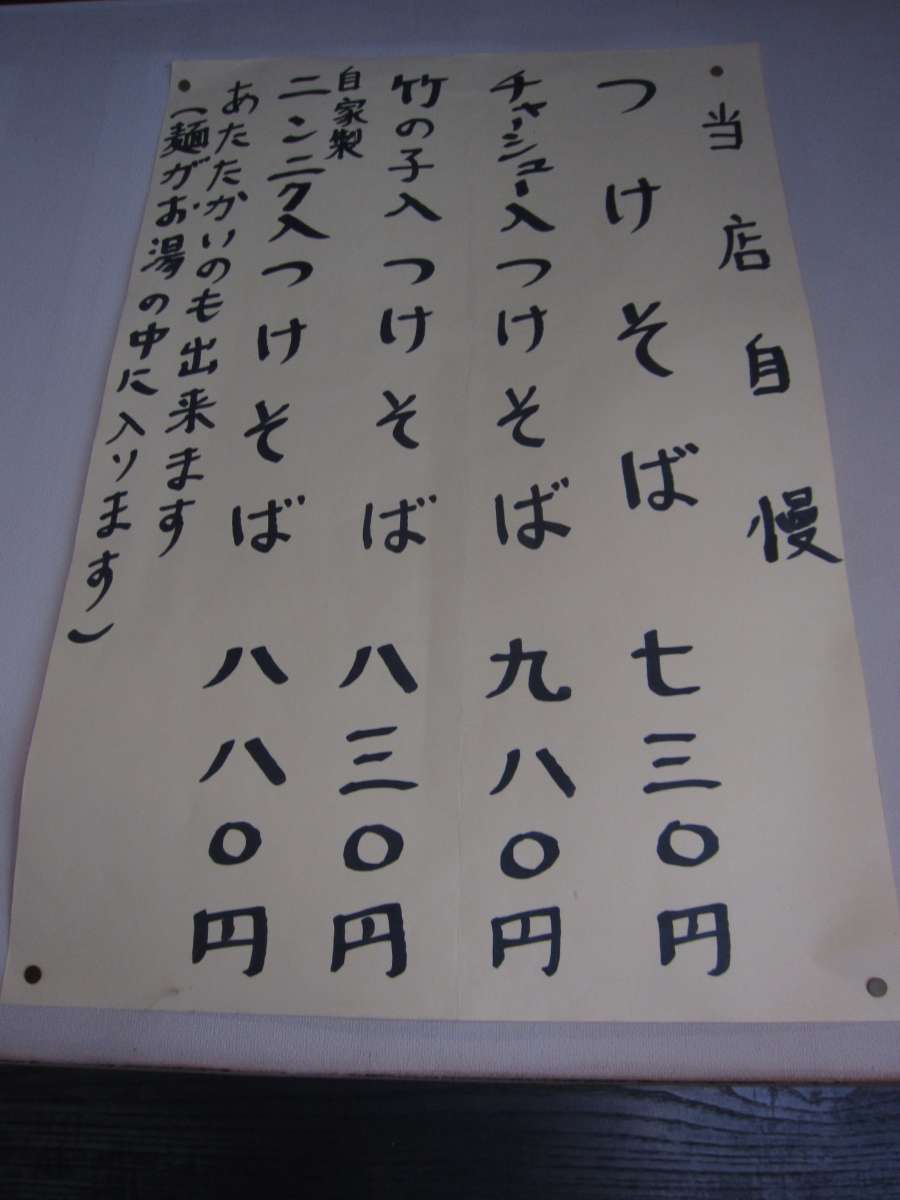 当店自慢
つけそば 七三〇円
チャーシュー入つけそば 九八〇円
竹の子入つけそば 八三〇円
自家製
ニンニク入つけそば 八八〇円
あたたかいのも出来ます
(麺がお湯の中に入ります)